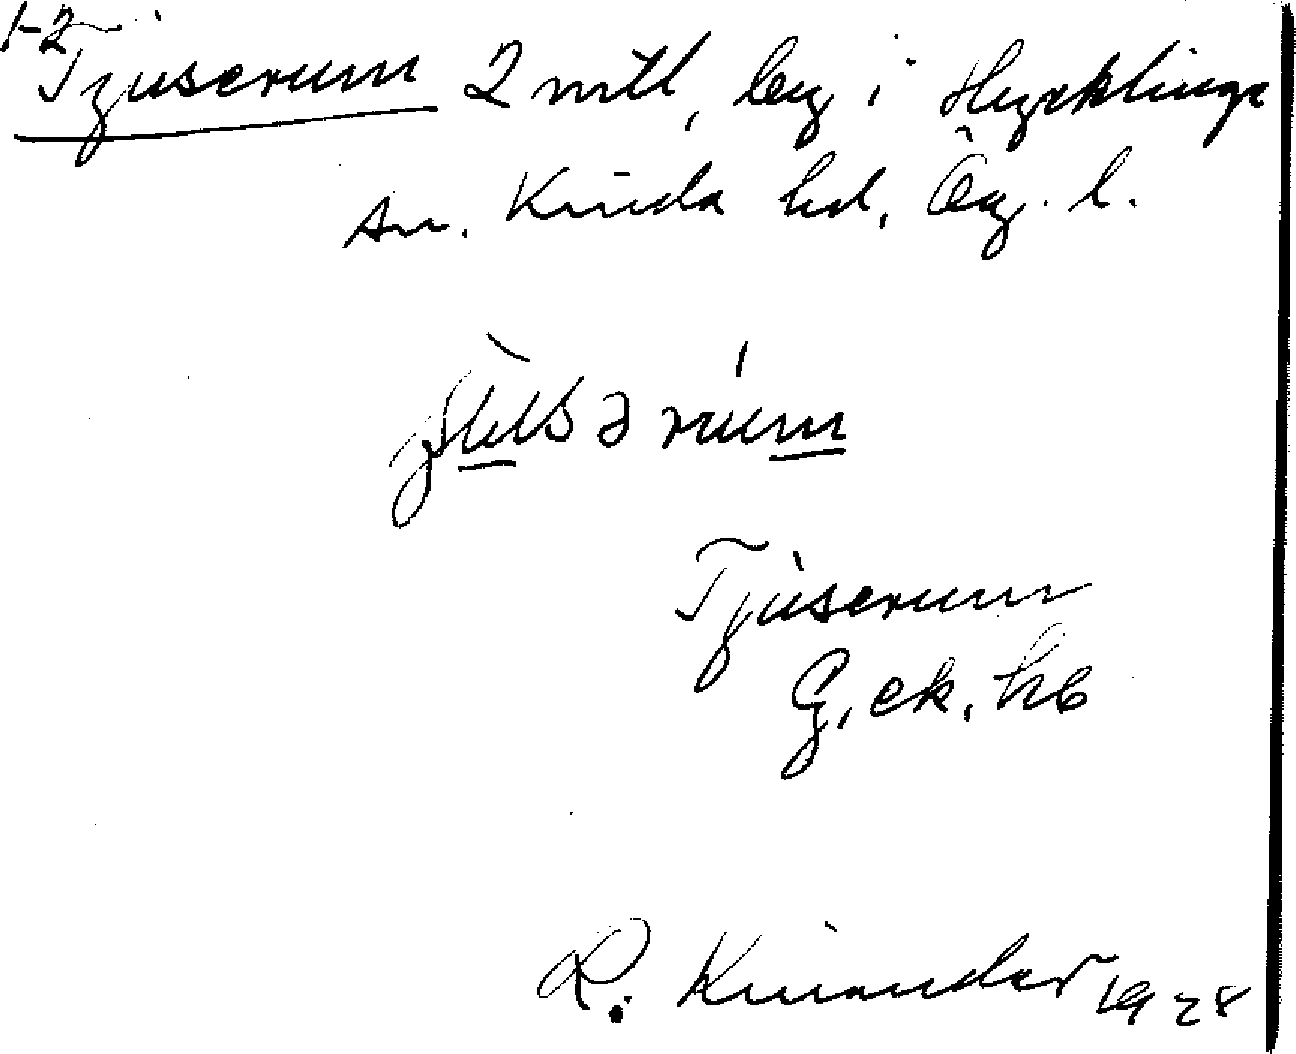 1-2
Tjuserum 2 mtl, by i Hycklinge
sn. Kinda hd, Ög. l.
Tjuserum
G, ek, hb
R. Kinander 1928